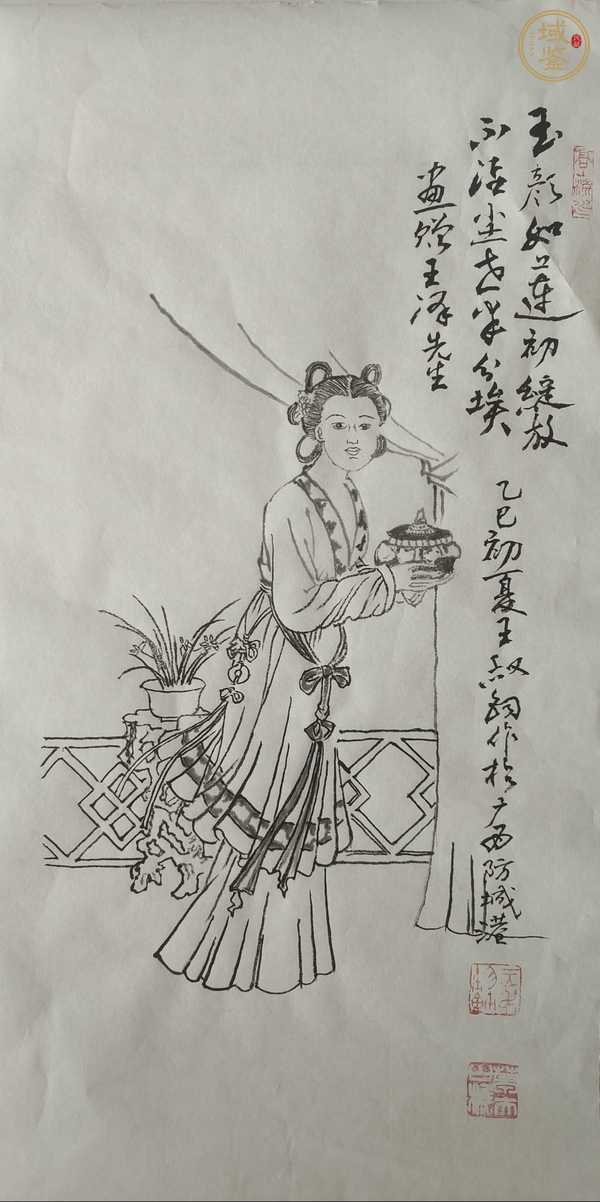 玉颜如莲初绽放
不沾尘世半分埃
画赠王泽先生
乙巳初夏王 钧作于广西防城港
域鉴